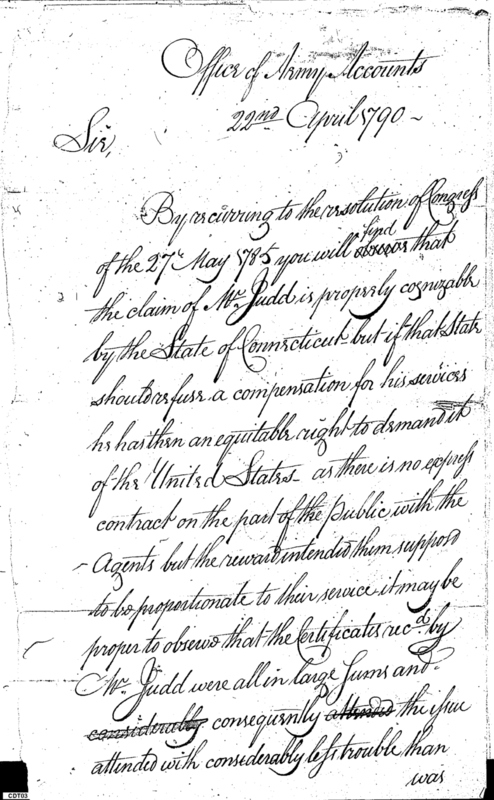 Office of Army Accounts
22nd April 1790
Sir,
By recurring to the resolution of Congress
find
of the 27th May 1785 you will observe that
the claim of Mr. Judd is properly cognizable
by the State of Connecticut but if that State
should refuse a compensation for his services
he has then an equitable right to demand it
of the United States - as there is no express
contract on the part of the public with the
Agents but the reward intended them supposd
to be proportionate to their service it may be
proper to observe that the Certificates recd by
Mr. Judd were all in large sums and
considerably consequently attended the issue
attended with considerably less trouble than
was
CDT03